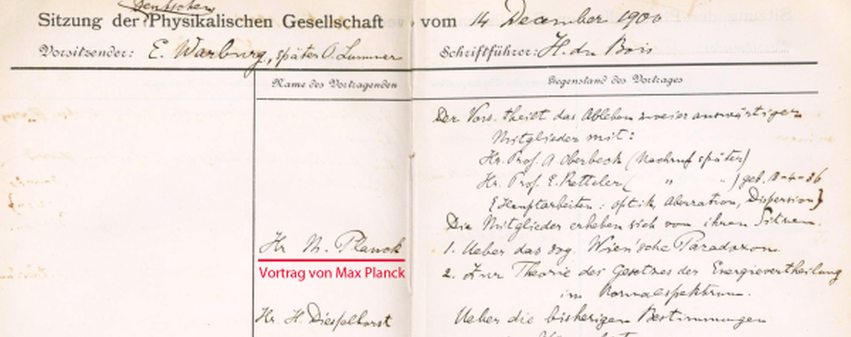 Deutschen
Sitzung der Physikalischen Gesellschaft vom 14 December 1900
Vorsitzender: E. Warburg, später O. Lummer Schriftführer: H. du Bois
Name des Vortragenden Gegenstand des Vortrages
Der Vors. theilt das Ableben zweier auswärtiger
Mitglieder mit:
Hr. Prof. A. Oberbeck (Nachruf später)
Hr. Prof. E. Ketteler ( " - ) geb.
(Hauptarbeiten: optik, Aberration, Dispersion)
Die Mitglieder erheben sich von ihren Sitzen.
Hr M. Planck 1. Ueber das sog. Wien'sche Paradoxon
Vortrag von Max Planck 2. Zur Theorie des Gesetzes der Energievertheilung
im Normalspektrum.
Hr. H. Diesselhorst Ueber die bisherigen Bestimmungen